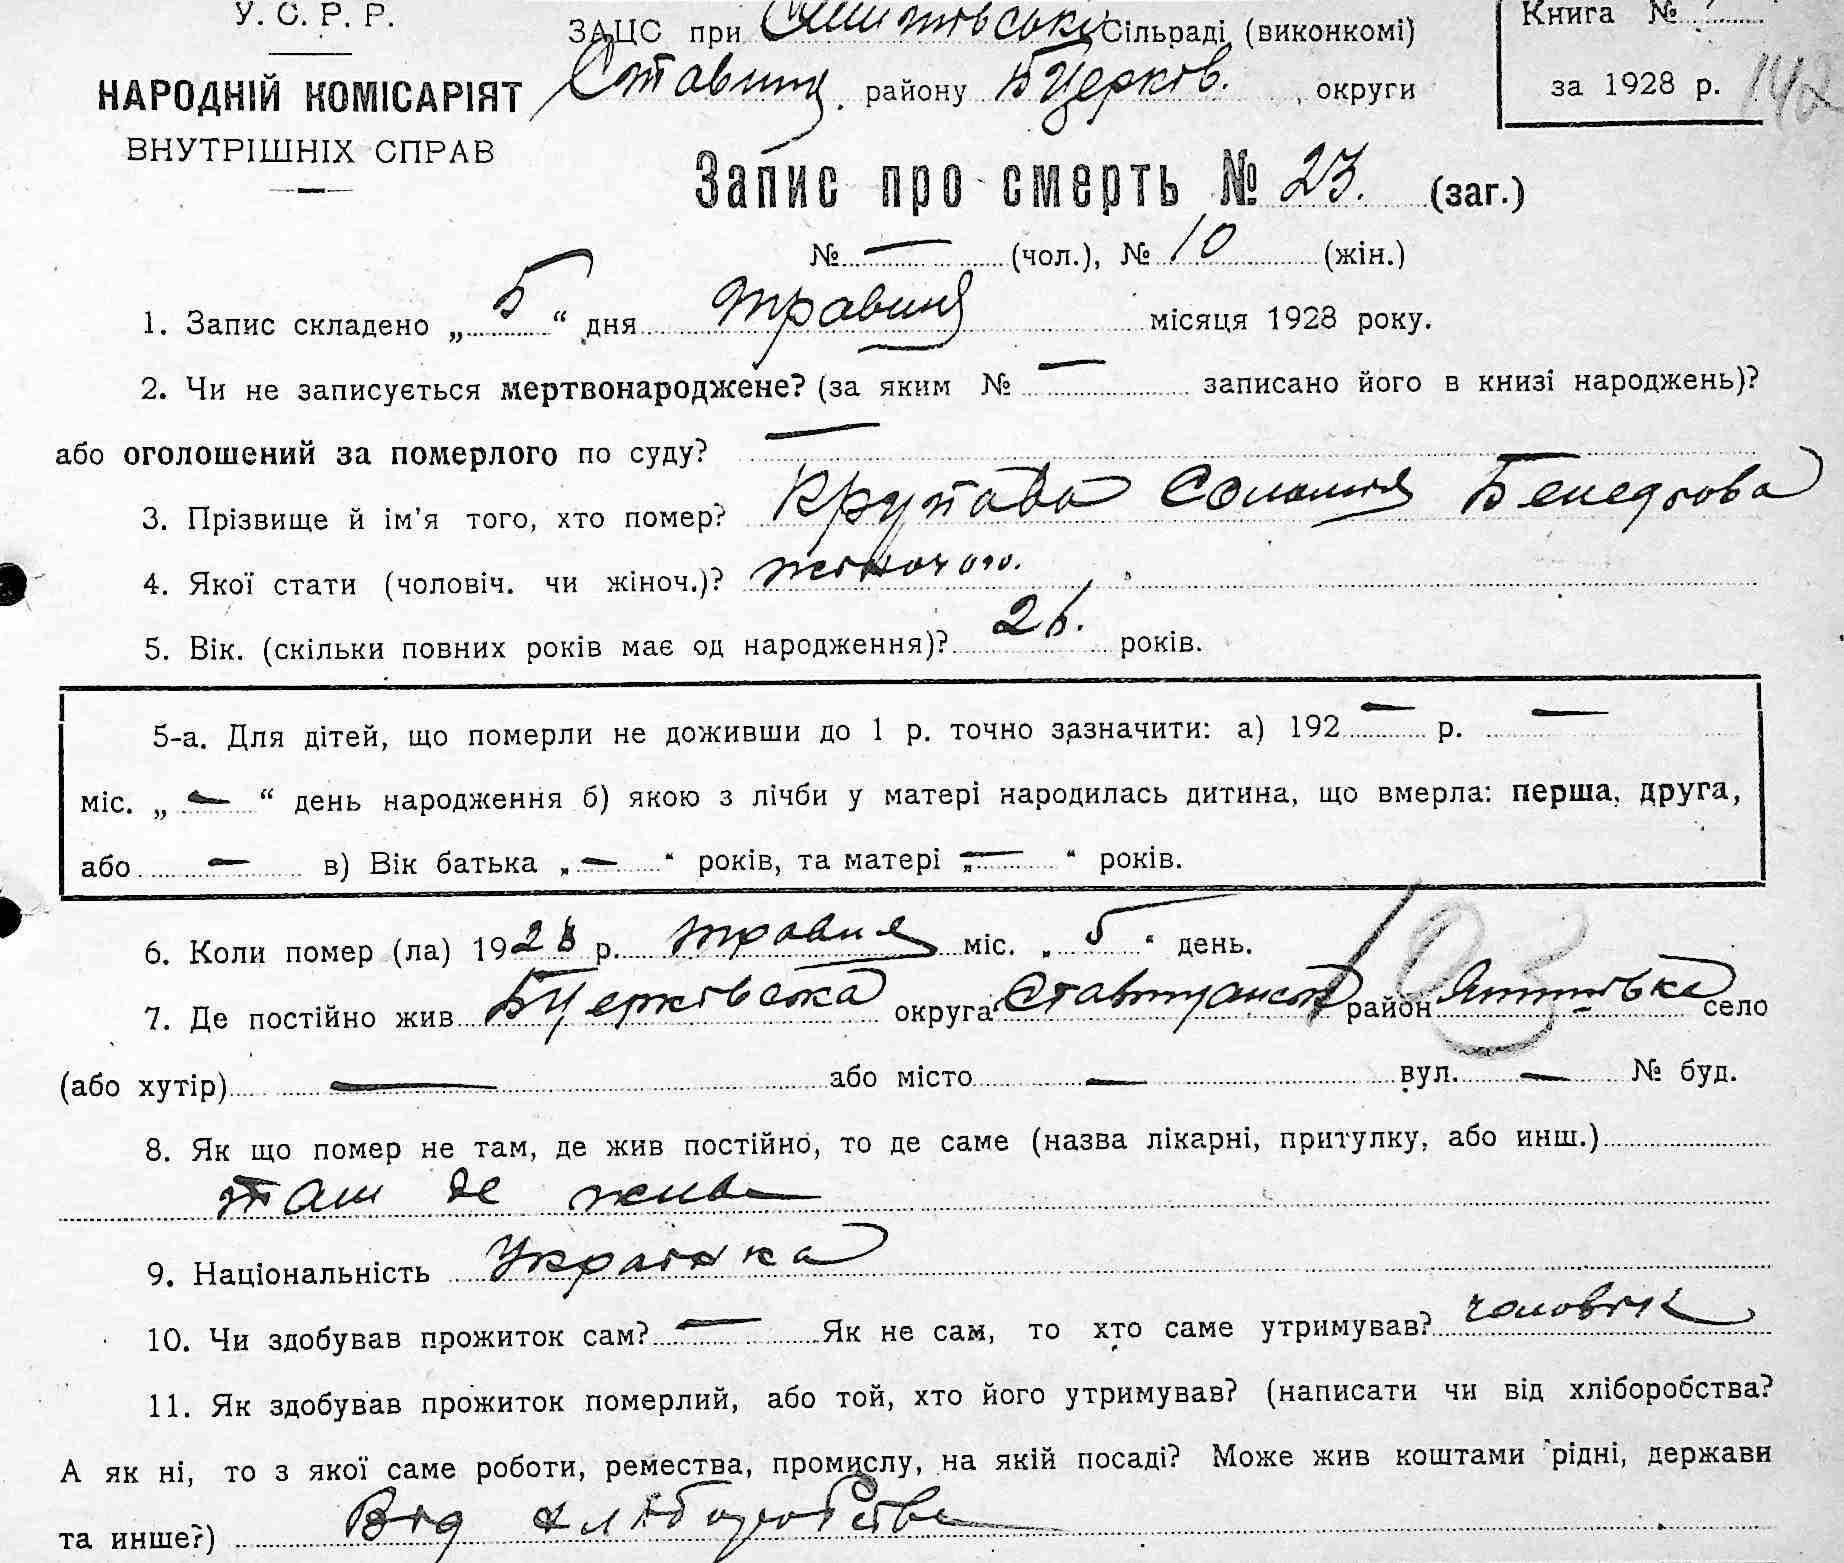 У. С. Р. Р.
НАРОДНІЙ КОМІСАРІЯТ
ВНУТРІШНІХ СПРАВ
ЗАЦС при Сільраді (виконкомі)
Ставищ. району Б Церків. округи
Книга №
за 1928 р. 142
Запис про смерть № 23. (заг.)
№ — (чол.), № 10 (жін.)
1. Запис складено „ 5 “ дня травня місяця 1928 року.
2. Чи не записується мертвонароджене? (за яким № — записано його в книзі народжень)?
або оголошений за померлого по суду? —
3. Прізвище й ім’я того, хто помер? Соломія Бенедтова
4. Якої стати (чоловіч. чи жіноч.)? жіночого.
5. Вік. (скільки повних років має од народження)? 26. років.
5-а. Для дітей, що померли не доживши до 1 р. точно зазначити: а) 192 — р. —
міс. „ — “ день народження б) якою з лічби у матері народилась дитина, що вмерла: перша, друга,
або — в) Вік батька „ — “ років, та матері „ — “ років.
6. Коли помер (ла) 1928 р. травня міс. „ 5 “ день.
7. Де постійно жив БЦерківська округа район село
(або хутір) — або місто — вул. — № буд.
103
8. Як що помер не там, де жив постійно, то де саме (назва лікарні, притулку, або инш.)
там де жив
9. Національність Українка
10. Чи здобував прожиток сам? — Як не сам, то хто саме утримував? чоловік
11. Як здобував прожиток померлий, або той, хто його утримував? (написати чи від хліборобства?
А як ні, то з якої саме роботи, ремества, промислу, на якій посаді? Може жив коштами рідні, держави
та инше?) Від хліборобства